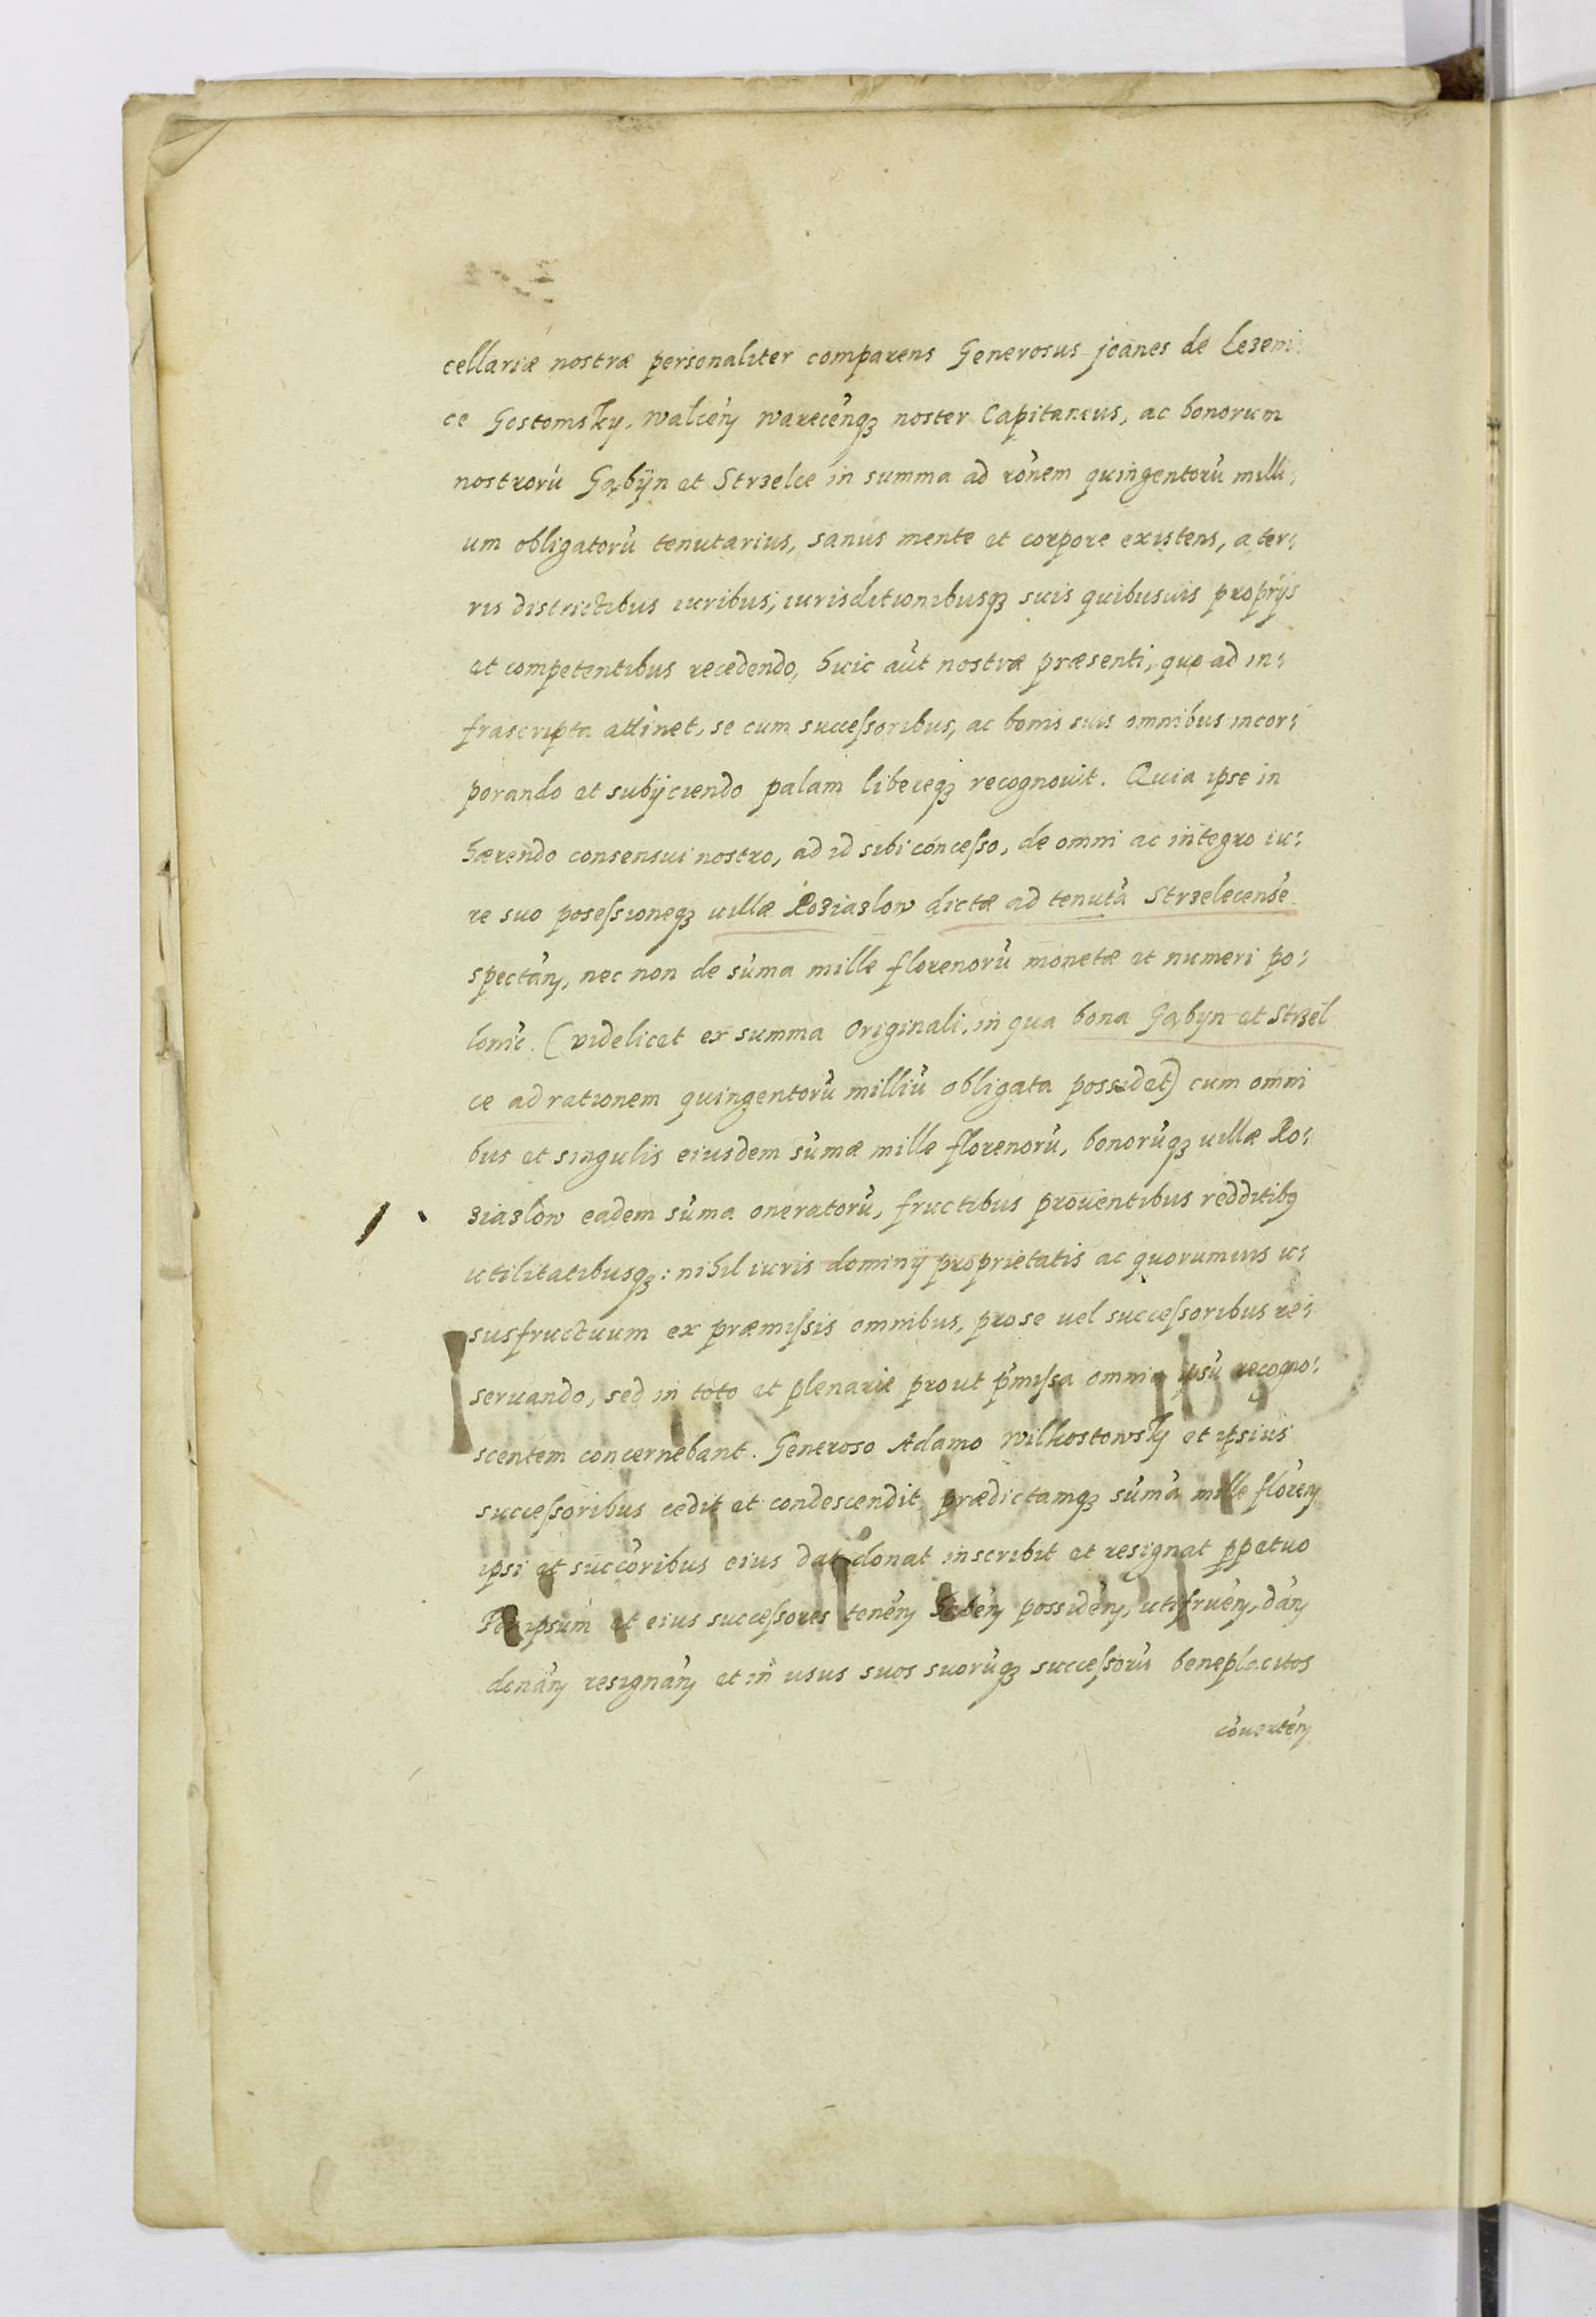 cellariæ nostræ personaliter comparens Generosus joānes de Lezeni:
ce Gostomsky, Walceñ Warecenqʒ noster Capitaneus, ac bonorum
nostrorū Gąbÿn et Strzelce in summa ad rōnem quingentorū milli:
um obligatorū tenutarius, sanus mente et corpore existens, a ter:
ris districtibus iuribus, iurisditionibusqʒ suis quibusuis proprijs
et competentibus recedendo, huic aūt nostræ præsenti, quo ad in:
frascripta attinet, se cum succeſsoribus, ac bonis suis omnibus incor:
porando et subÿciendo palam libereqʒ recognouit. Quia ipse in
hærendo consensui nostro, ad id sibi conceſso, de omni ac integro iu:
re suo poseſsioneqʒ uillæ Roziazlow dictæ ad tenutā Strzelecense
spectañ, nec non de sūma mille florenorū monetæ et numeri po:
lonic. (videlicet ex summa Originali, in qua bona Gąbyn et Strzel
ce ad rationem quingentorū milliū obligata possidet) cum omni
bus et singulis eiusdem sūmæ mille florenorū, bonorūqʒ uillæ Ro:
ziazlow eadem sūma oneratorū, fructibus prouentibus redditibꝯ
utilitatibusqʒ: nihil iuris dominÿ proprietatis ac quorumuis u:
susfructuum ex præmiſsis omnibus, pro se uel succeſsoribus re:
seruando, sed in toto et plenarie prout p̄miſsa omnia ipsū recogno:
scentem concernebant. Generoso Adamo Wilkostowsky et ipsius
succeſsoribus cedit et condescendit, prædictamqʒ sūmā mille floreñ
ipsi et succōribus eius dat donat inscribit et resignat ꝑpetuo
Per ipsum et eius succeſsores teneñ habeñ possideñ, utifrueñ, dañ
donañ resignañ et in usus suos suorūqʒ succeſsorū beneplacitos
cōuerteñ